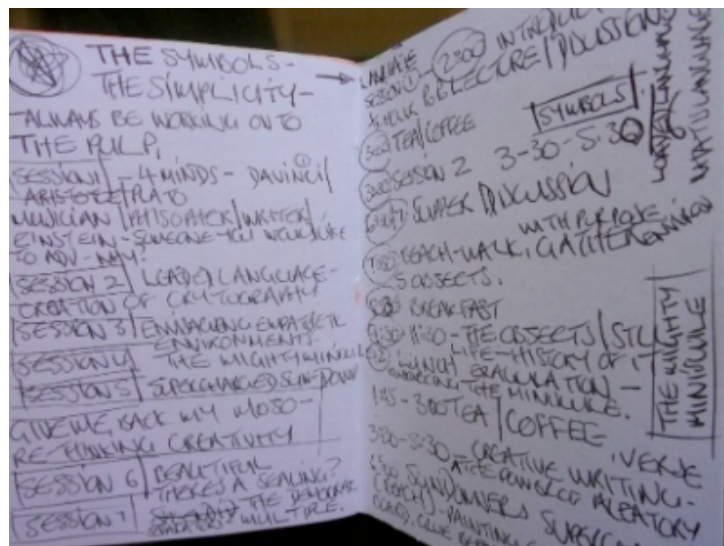 THE SYMBOLS -
THE SIMPLICITY -
ALWAYS BE WORKING ON TO
THE PULP,
SESSION 1 - 4 MINDS - DAVINCI /
ARISTOTLE / PLATO
MUSICIAN / PHISOPHER / WRITER /
EINSTEIN - SOMEONE YOU WOULD LIKE
TO ADD - WHY?
SESSION 2 LOADED LANGUAGE -
CREATION OF CRYTOGRAPHY
SESSION 3 EMPATHETIC
ENVIRONMENTS
SESSION 4 THE MIGHTY MINISCULE
SESSION 5 SUPERCHARGED SUN-DOWN
GIVE ME BACK MY MOJO -
RE-THINKING CREATIVITY
SESSION 6 BEAUTIFUL
THERES A SEALING?
SESSION 7 THE
MULTIPLE.
LANGUAGE
SESSION 1 - 2:00 INTRODUCTION
LECTURE / DISCUSSION
TEA/COFFEE
SYMBOLS
SESSION 2 3-30 - 5.30
SUPPER DISCUSSION
WITH PURPOSE
BEACH-WALK, GATHER
5 OBJECTS.
BREAKFAST
11:30 - THE OBJECTS / STILL
LIFE - HISTORY OF IT
LUNCH
THE MINISCULE.
1:15 - 3:00 TEA / COFFEE
3:30 - 5:30 - CREATIVE WRITING - VERSE
ALEATORY
SUNDOWNERS
(BEACH) - PAINTING
LOADED LANGUAGE
THE MIGHTY
MINISCULE